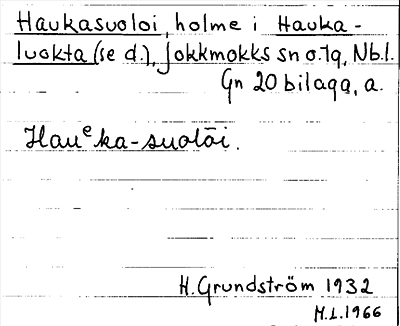 Haukasuoloi, holme i Hauka-
luokta (se d.), Jokkmokks sn o. tg, Nb.l.
Gn 20 bilaga, a.
Hauᵉka-suolōi.
H. Grundström 1932
M.L. 1966